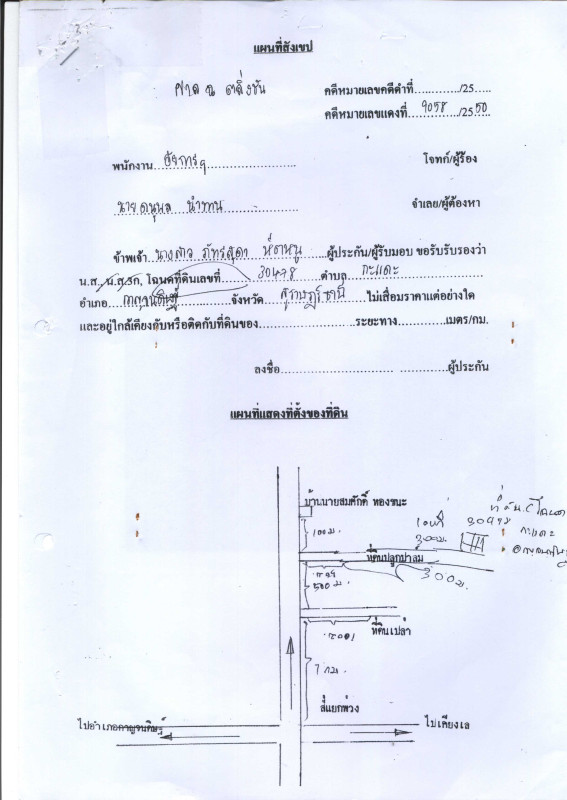 แผนที่สังเขป
ศาล ณ ตลิ่งชัน
คดีหมายเลขคดีดำที่............./25.....
คดีหมายเลขแดงที่ 9058 /25 50
พนักงาน อัยการฯ โจทก์/ผู้ร้อง
นาย จำเลย/ผู้ต้องหา
ข้าพเจ้า นางสาว ภัทร์สุดา ผู้ประกัน/ผู้รับมอบ ขอรับรับรองว่า
น.ส., น.ส.3ก, โฉนดที่ดินเลขที่ 30478 ตำบล กะแดะ
อำเภอ กาญจนดิษฐ์ จังหวัด สุราษฎร์ธานี ไม่เสื่อมราคาแต่อย่างใด
และอยู่ใกล้เคียงกับหรือติดกับที่ดินของ..............................ระยะทาง...............เมตร/กม.
ลงชื่อ.......................... ............ผู้ประกัน
แผนที่แสดงที่ตั้งของที่ดิน
บ้านนายสมศักดิ์ ทองขนะ
100 ม.
กะแดะ
ที่ดินปลูกปาล์ม
300 ม.
500 ม.
ที่ดินเปล่า
7 กม.
สี่แยกพ่วง
ไปอำเภอกาญจนดิษฐ์
ไปเคียงเล